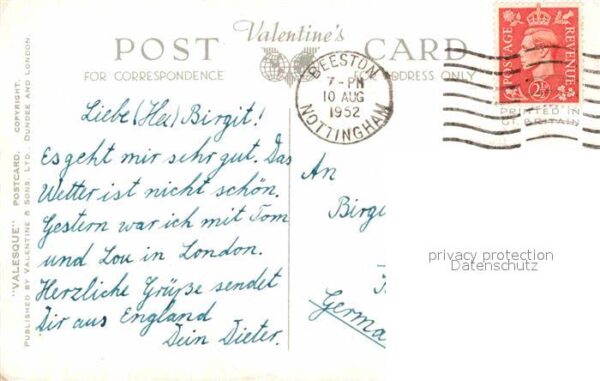 Valentine's
POST CARD
FOR CORRESPONDENCE
FOR ADDRESS ONLY
BEESTON
7-PM
10 AUG
1952
NOTTINGHAM
POSTAGE REVENUE
2½
PRINTED IN
GT. BRITAIN
"VALESQUE" POSTCARD. COPYRIGHT.
PUBLISHED BY VALENTINE & SONS LTD. DUNDEE AND LONDON.
Liebe Birgit!
Es geht mir sehr gut. Das
Wetter ist nicht schön.
Gestern war ich mit Tom
und Lou in London.
Herzliche Grüße sendet
Dir aus England
Dein Dieter.
An
Birgi
Germa
privacy protection
Datenschutz